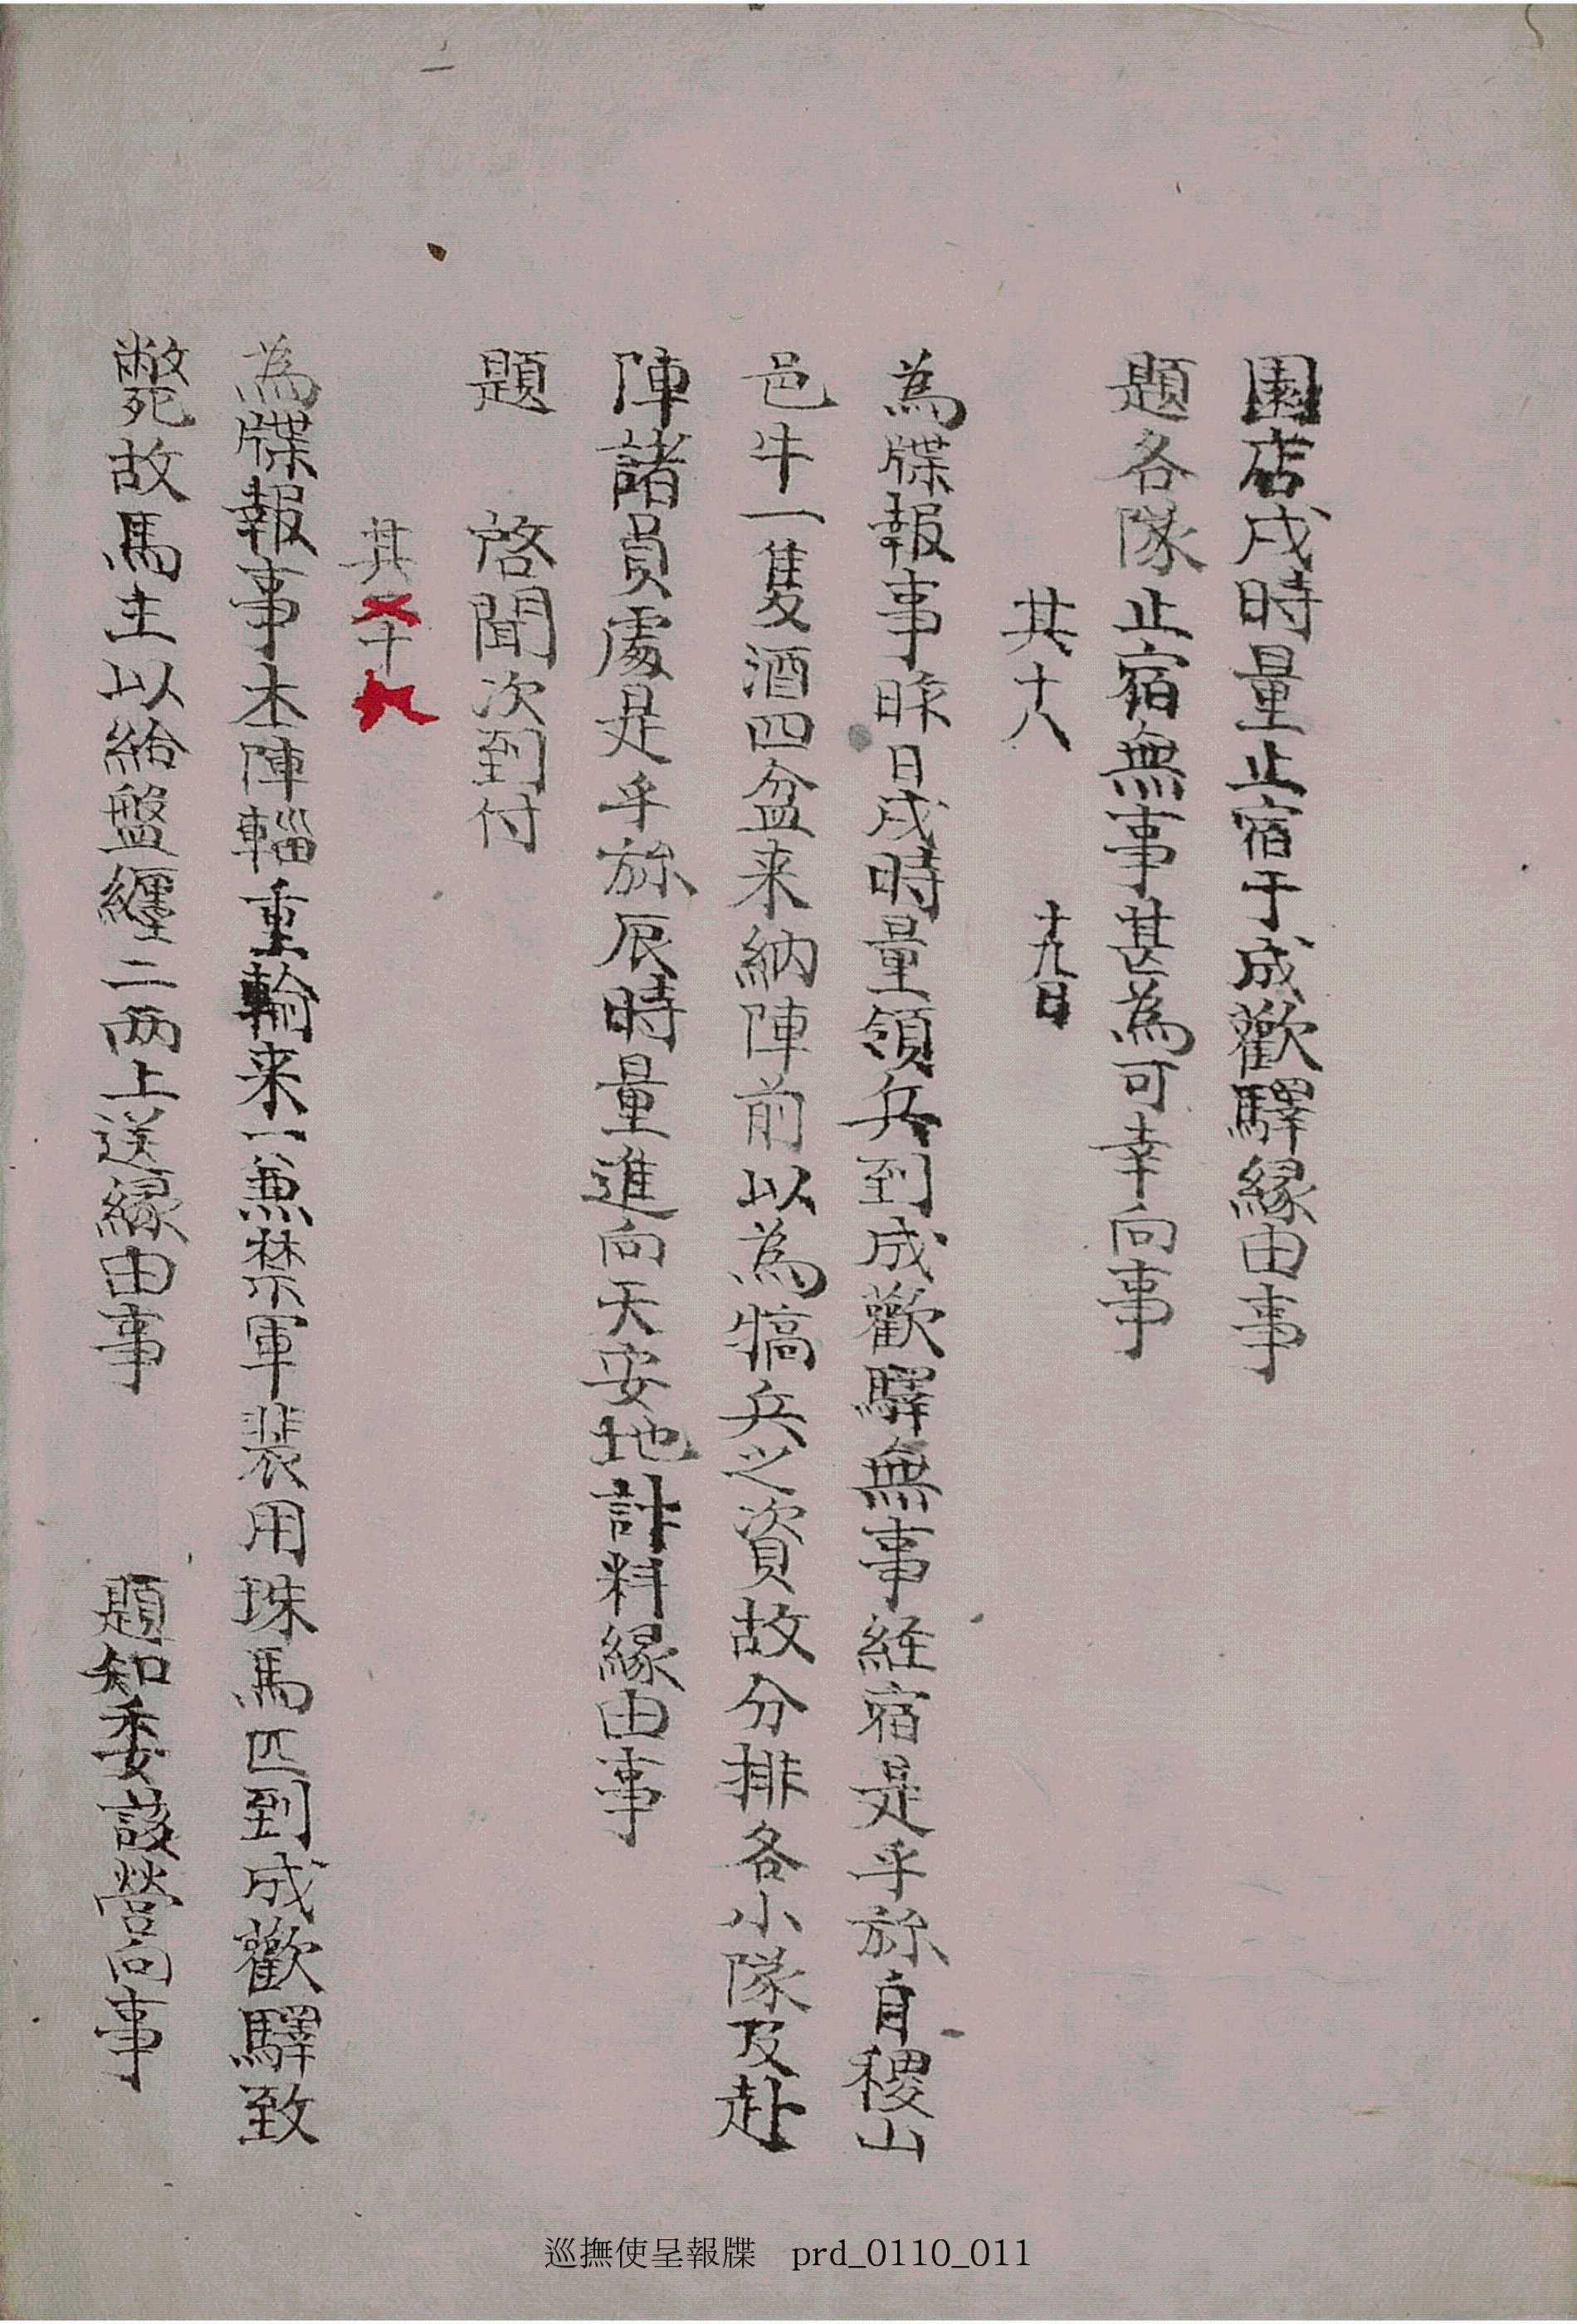 園店戌時量止宿于成歡驛緣由事
題各隊止宿無事甚爲可幸向事
其十八 十九日
爲牒報事昨日戌時量領兵到成歡驛無事経宿是乎旀自稷山
邑牛一隻酒四盆来納陣前以爲犒兵之資故分排各小隊及赴
陣諸員處是乎旀辰時量進向天安地計料緣由事
題 啓聞次到付
其十九
爲牒報事本陣輜重輪来 兼禁軍裝用珠馬匹到成歡驛致
斃故馬主以給盤纏二两上送緣由事 題知委該營向事
巡撫使呈報牒 prd_0110_011